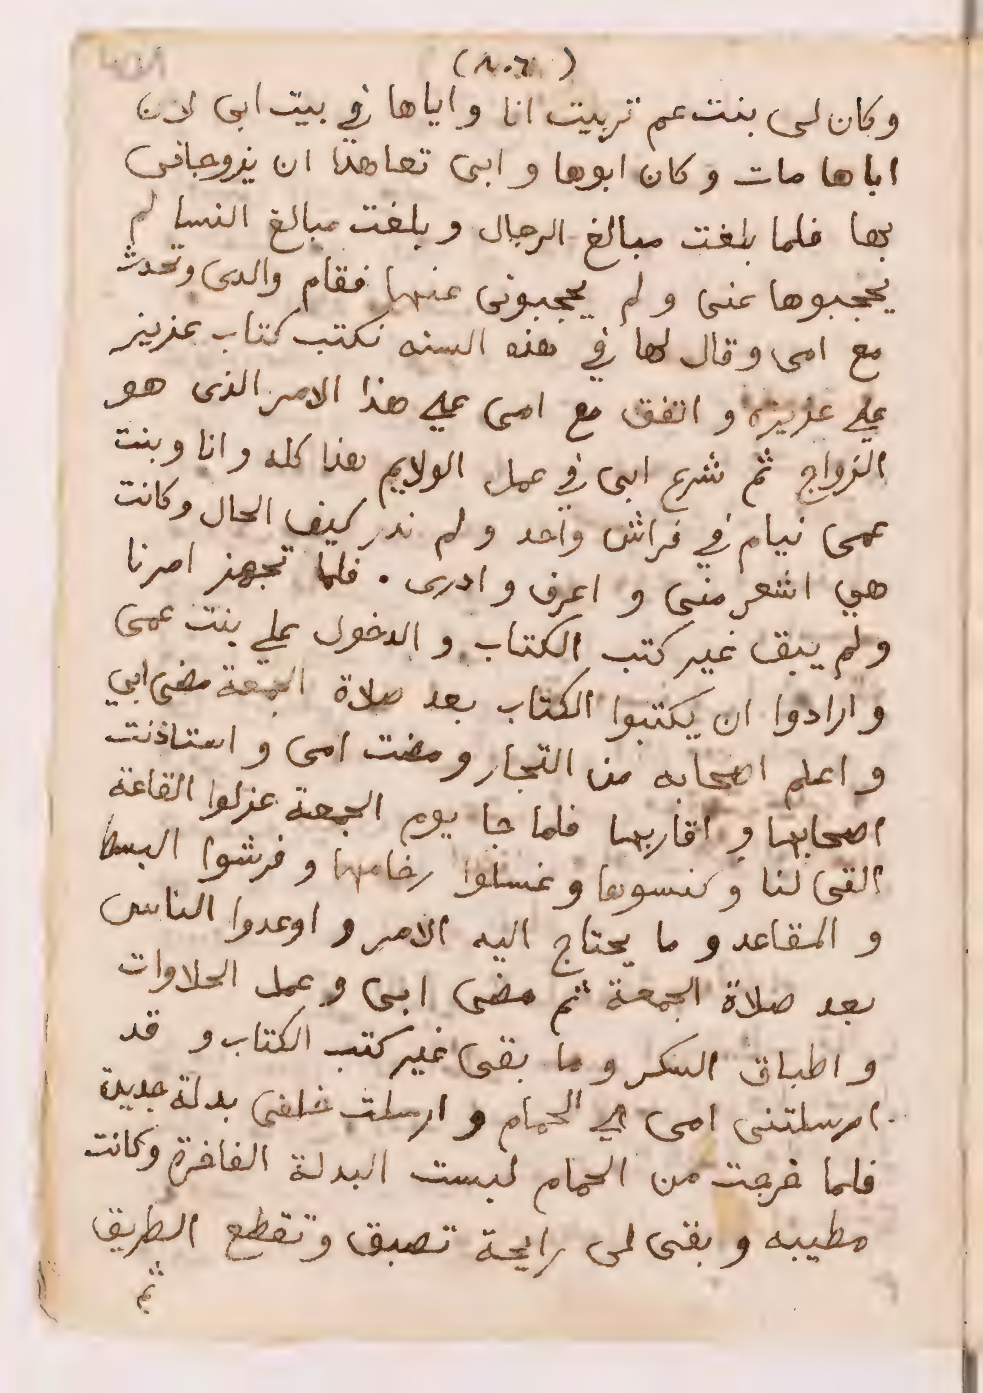 (٨٠٦)
وكان لى بنت عم تربيت انا واياها في بيت ابى لان
اباها مات وكان ابوها وابى تعاهدا ان يزوجانى
بها فلما بلغت مبالغ الرجال وبلغت مبالغ النسا لم
يحجبوها عنى ولم يحجبونى عنها فقام والدى وتحدث
مع امى وقال لها في هذه السنه نكتب كتاب عزيز
على عزيزه واتفق مع امى على هذا الامر الذى هو
الزواج ثم شرع ابى في عمل الولايم هذا كله وانا وبنت
عمى نيام في فراش واحد ولم ندر كيف الحال وكانت
هي اشعر منى واعرف وادرى . فلما تجهز امرنا
ولم يبق غير كتب الكتاب والدخول على بنت عمى
وارادوا ان يكتبوا الكتاب بعد صلاة الجمعة مضى ابي
واعلم اصحابه من التجار ومضت امى واستاذنت
اصحابها واقاربها فلما جا يوم الجمعة عزلوا القاعة
التى لنا وكنسوها وغسلوا رخامها وفرشوا البسط
والمقاعد وما يحتاج اليه الامر واوعدوا الناس
بعد صلاة الجمعة ثم مضى ابى وعمل الحلاوات
واطباق السكر وما بقى غير كتب الكتاب وقد
ارسلتنى امى الى الحمام وارسلت خلفى بدلة جديدة
فلما خرجت من الحمام لبست البدلة الفاخرة وكانت
مطيبه وبقى لى رايحة تعبق وتقطع الطريق
ثم